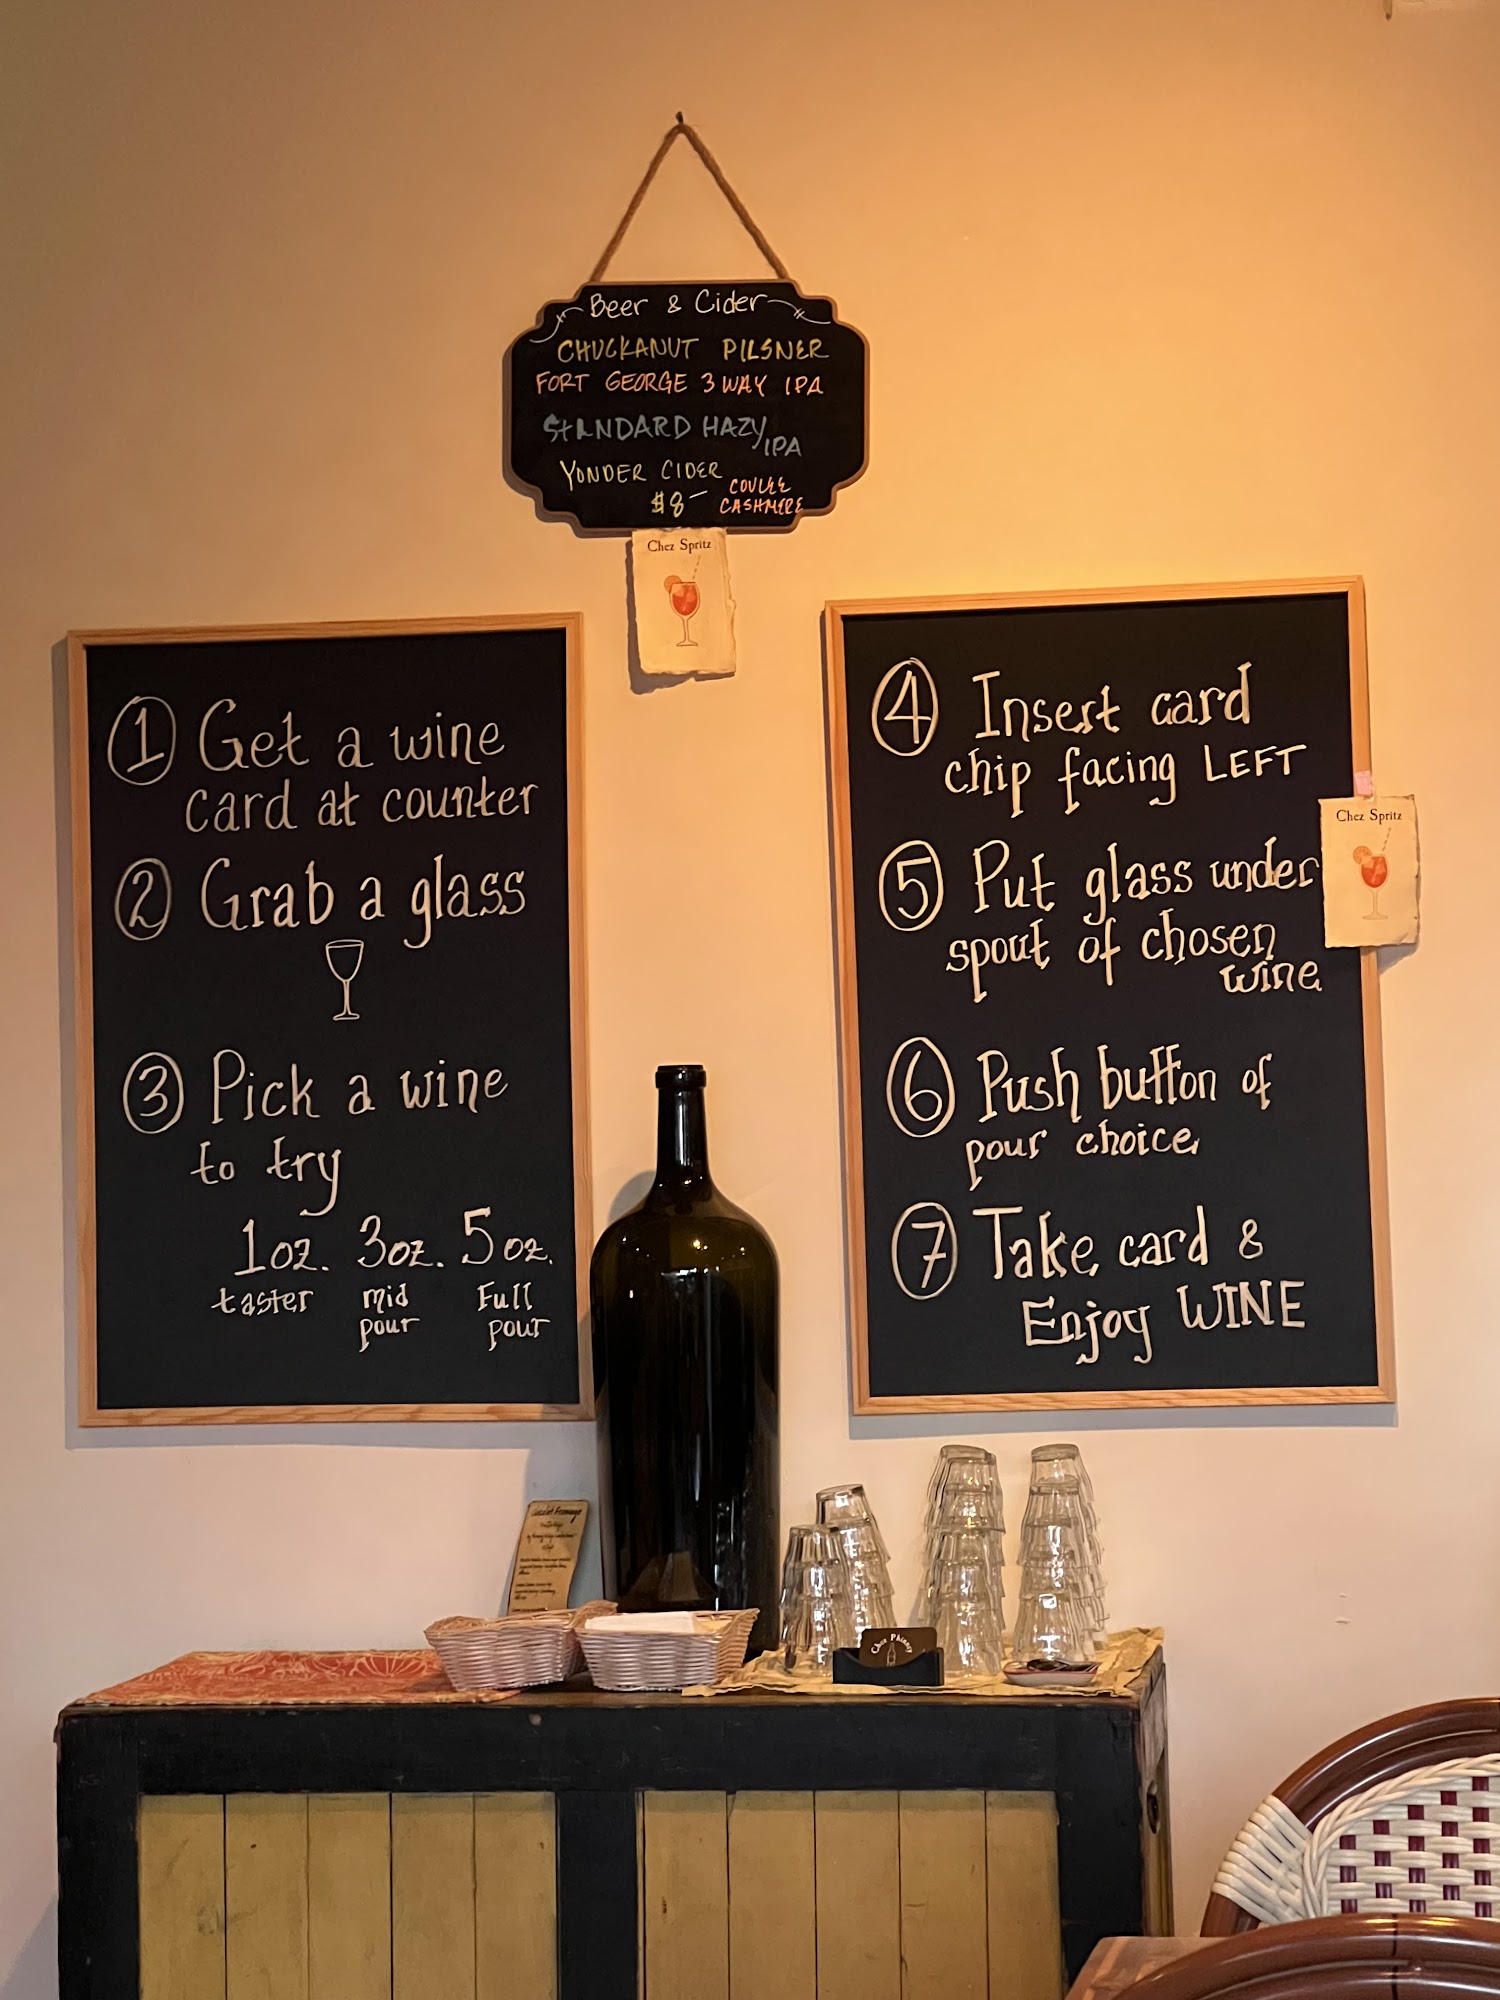 Beer & Cider
CHUCKANUT PILSNER
FORT GEORGE 3 WAY IPA
STANDARD HAZY
IPA
YONDER CIDER
$8-
COULEE
CASHMERE
Chez Spritz
1 Get a wine
card at counter
2 Grab a glass
3 Pick a wine
to try
1oz. 3oz. 5oz.
taster mid Full
pour pour
4 Insert card
chip facing LEFT
Chez Spritz
5 Put glass under
spout of chosen
wine
6 Push button of
pour choice
7 Take card &
Enjoy WINE
Chez Phinney